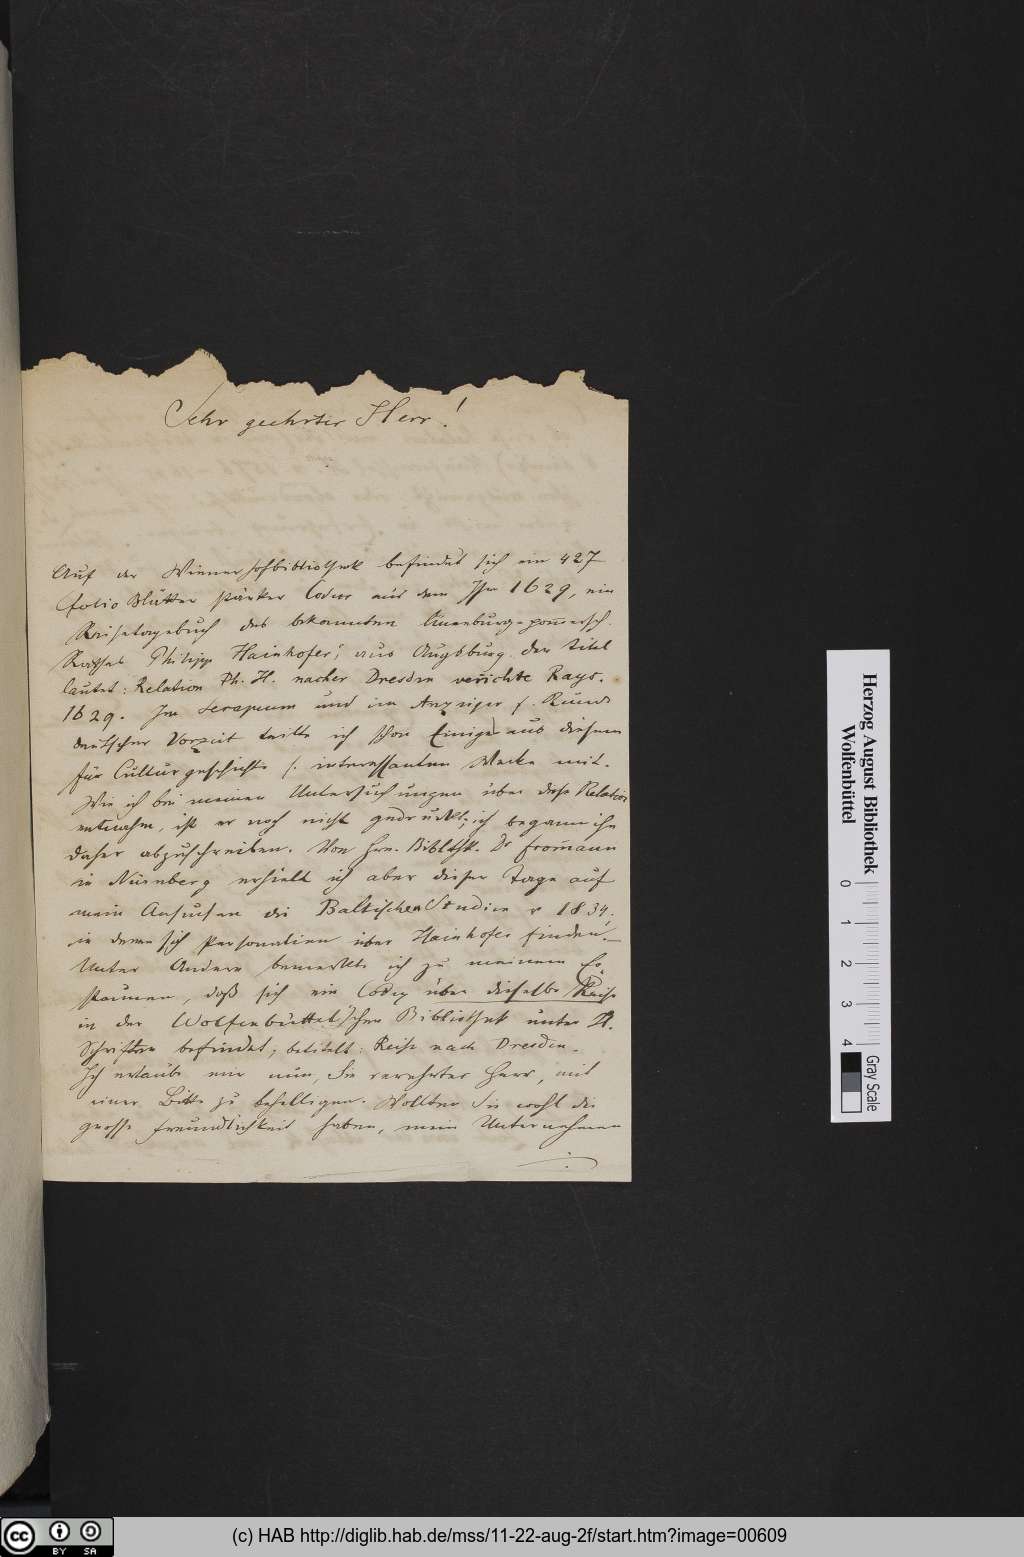 Sehr geehrter Herr!
Auf der Wiener Hofbibliothek befindet sich ein 427
Folio Blätter starker Codex aus dem Jhr 1629, ein
Reisetagebuch des bekannten Lüneburg-pommersch.
Rathes Philipp Hainhofer's aus Augsburg. der Titel
lautet: Relation Ph. H. nacher Dresden verichte Rays.
1629. Im Serapeum und im Anzeiger f. Kunde
deutscher Vorzeit teilte ich schon Einiges aus diesem
für Culturgeschichte s. interessanten Werke mit.
Wie ich bei meinen Untersuchungen über diese Relation
entnahm, ist er noch nicht gedruckt; ich begann ihn
daher abzuschreiben. Von Hrn. Biblthk. Dr Fromann
in Nürnberg erhielt ich aber dieser Tage auf
mein Ansuchen die Baltischen Studien v 1834.
in denen sich Personalien über Hainhofer finden.
Unter Andern bemerkte ich zu meinem Er-
staunen, daß sich ein Codex über dieselbe Reise
in der Wolfenbüttel'schen Bibliothek unter H.
Schriften befindet; betitelt: Reise nach Dresden.
Ich erlaube mir nun, Sie verehrter Herr, mit
einer Bitte zu behelligen. Wollten Sie wohl die
grosse Freundlichkeit haben, mein Unternehmen
Herzog August Bibliothek
Wolfenbüttel
0 1 2 3 4
Gray Scale
cc BY SA
(c) HAB http://diglib.hab.de/mss/11-22-aug-2f/start.htm?image=00609